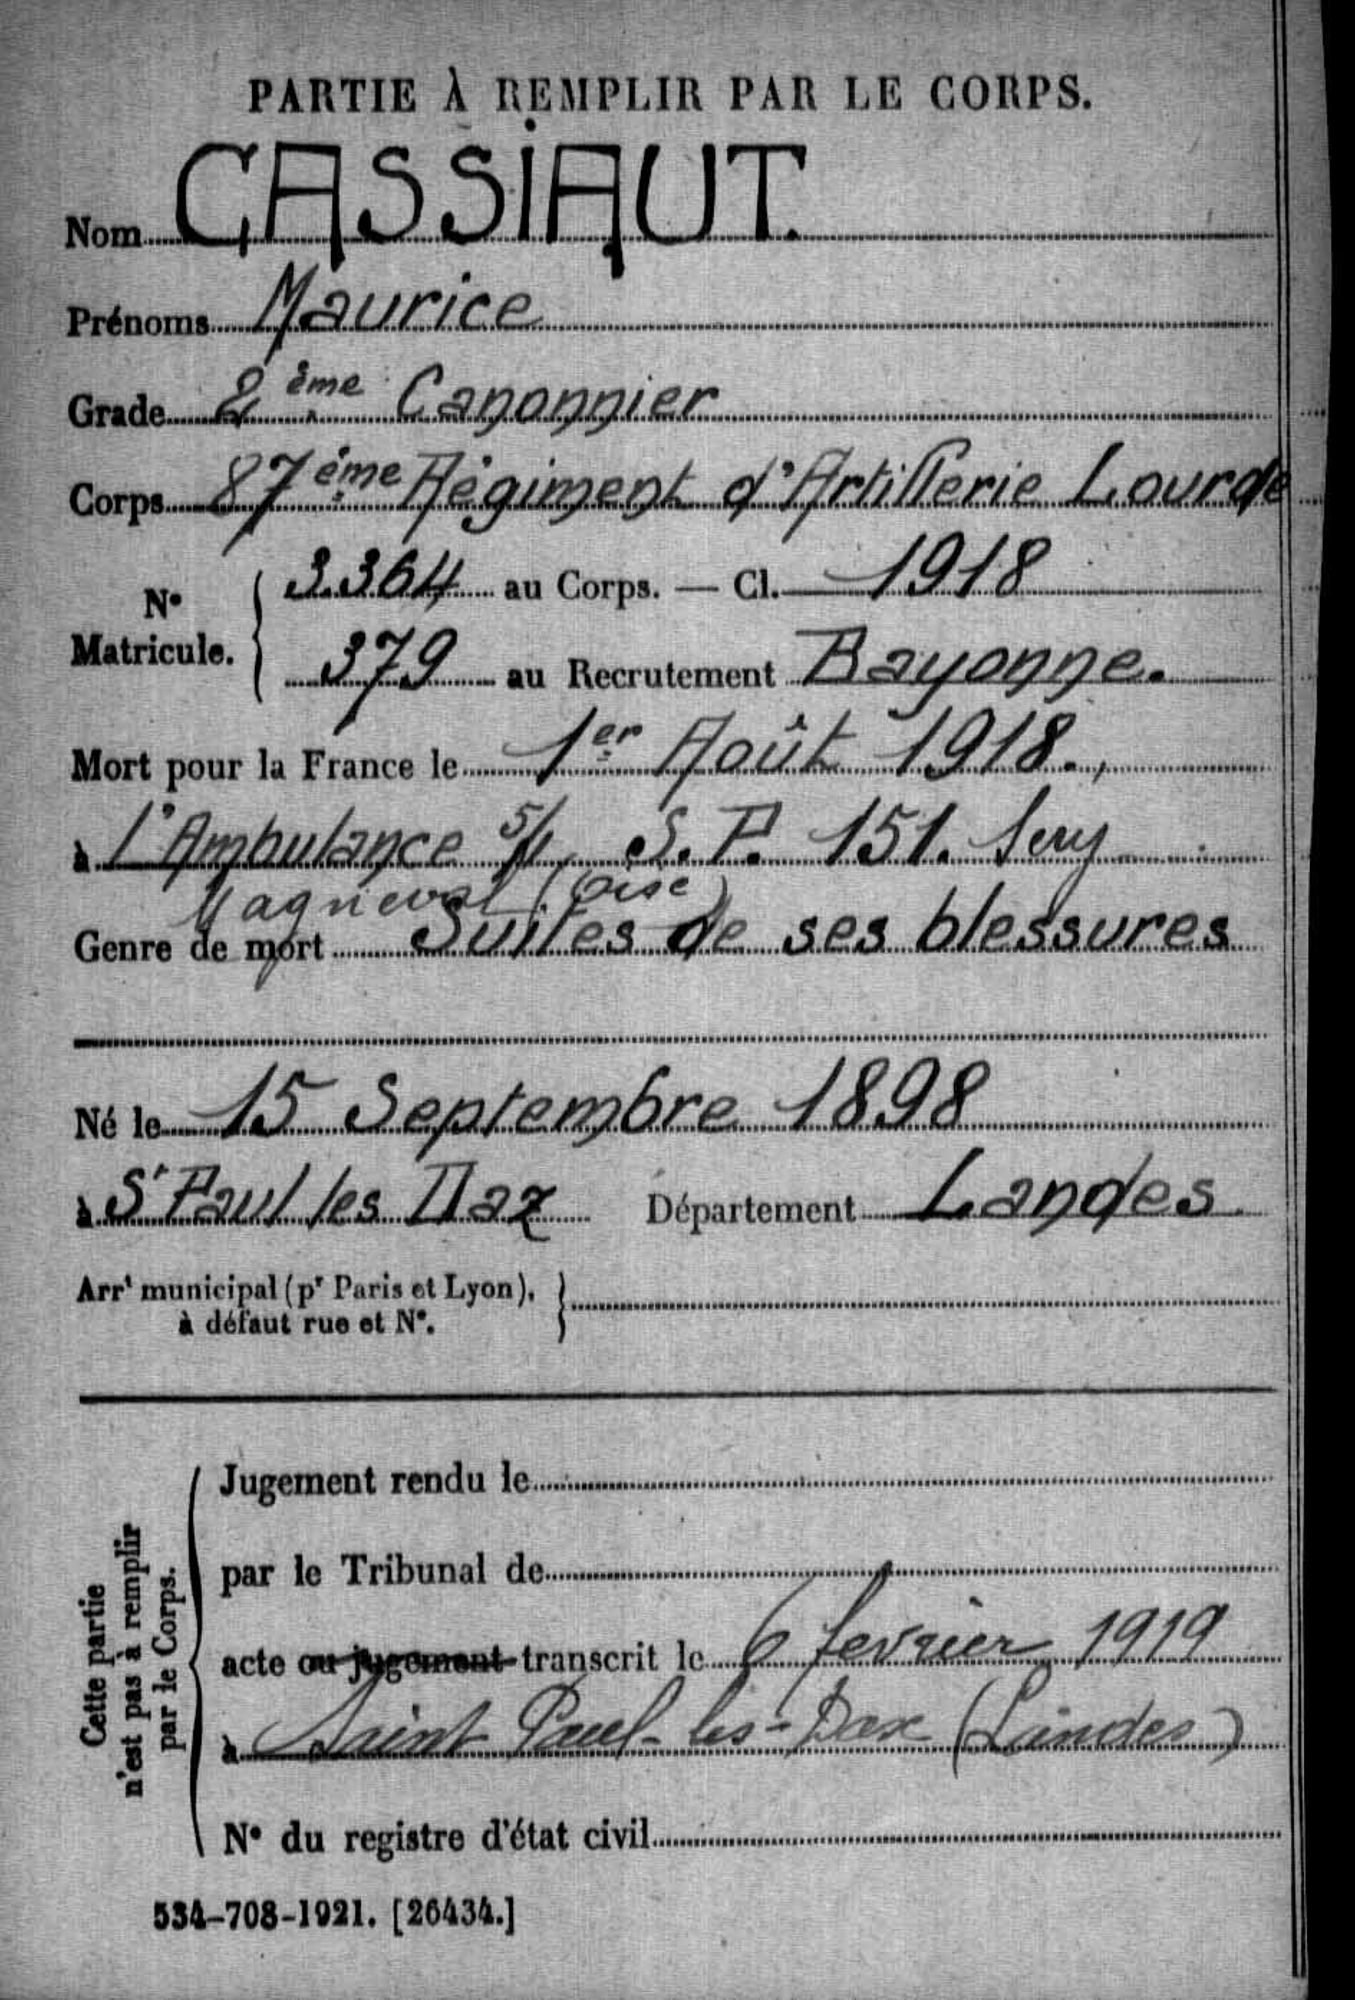 PARTIE À REMPLIR PAR LE CORPS.
Nom CASSIAUT.
Prénoms Maurice
Grade 2ème Canonnier
Corps 87ème Régiment d'Artillerie Lourde
N° Matricule. 3.364 au Corps. — Cl. 1918
379 au Recrutement Bayonne.
Mort pour la France le 1er Août 1918.,
à l'Ambulance 5/1 S.P. 151. Sery
Magneval (Oise)
Genre de mort Suites de ses blessures
Né le 15 Septembre 1898
à St Paul les Dax Département Landes
Arrt municipal (pr Paris et Lyon),
à défaut rue et N°.
Cette partie
n'est pas à remplir
par le Corps.
Jugement rendu le
par le Tribunal de
acte ou jugement transcrit le 6 fevrier 1919
à Saint Paul-les-Dax (Landes)
N° du registre d'état civil
534-708-1921. [26434.]